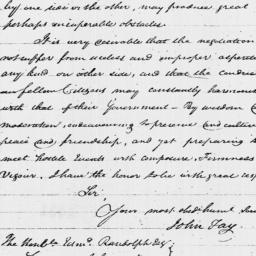 by one side or the other, may produce great
perhaps insuperable obstacles
It is very desirable that the negotiation
not suffer from asperities and improper asperities
any kind on either side, and that the candour
our fellow Citizens may constantly harmonize
with that of their Government — By wisdom
moderation, endeavouring to preserve and cultivate
peace and friendship, and yet preparing to
meet hostile Events with composure, Firmness
Vigour. I have the honor to be with great res
Sir
Your most obedt. & humt. Serv
John Jay
The Honble. Edmd. Randolph Esqr.